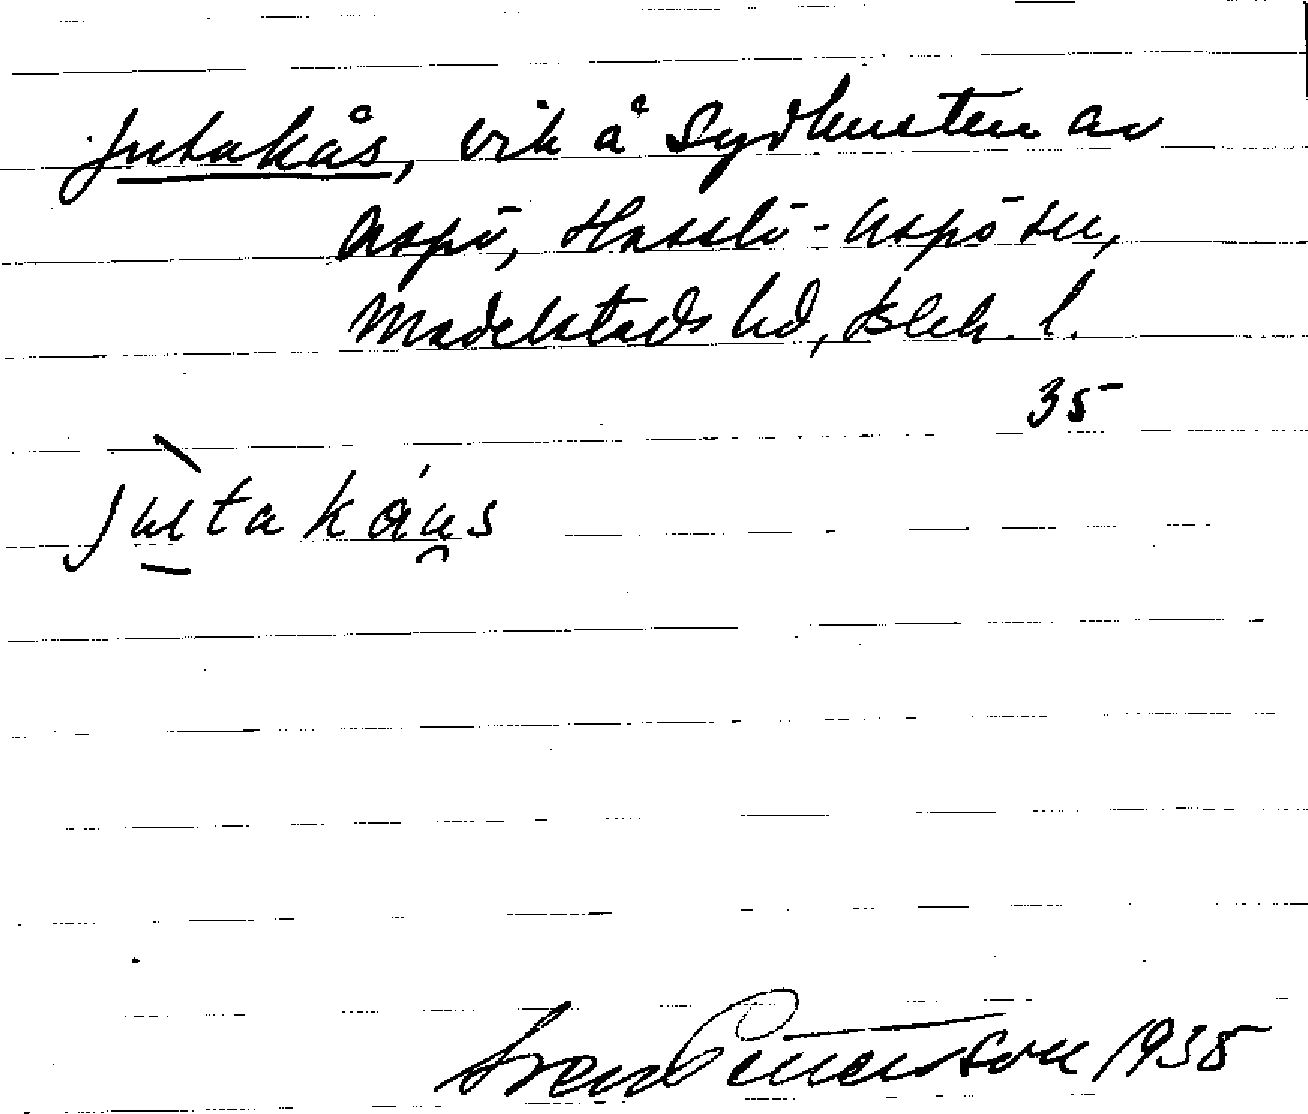 Jutakås, vik å Sydkusten av
Aspö, Hasslö-Aspö sn,
Medelstads hd, Blek. l.
35
jutakåus
Sven 1935